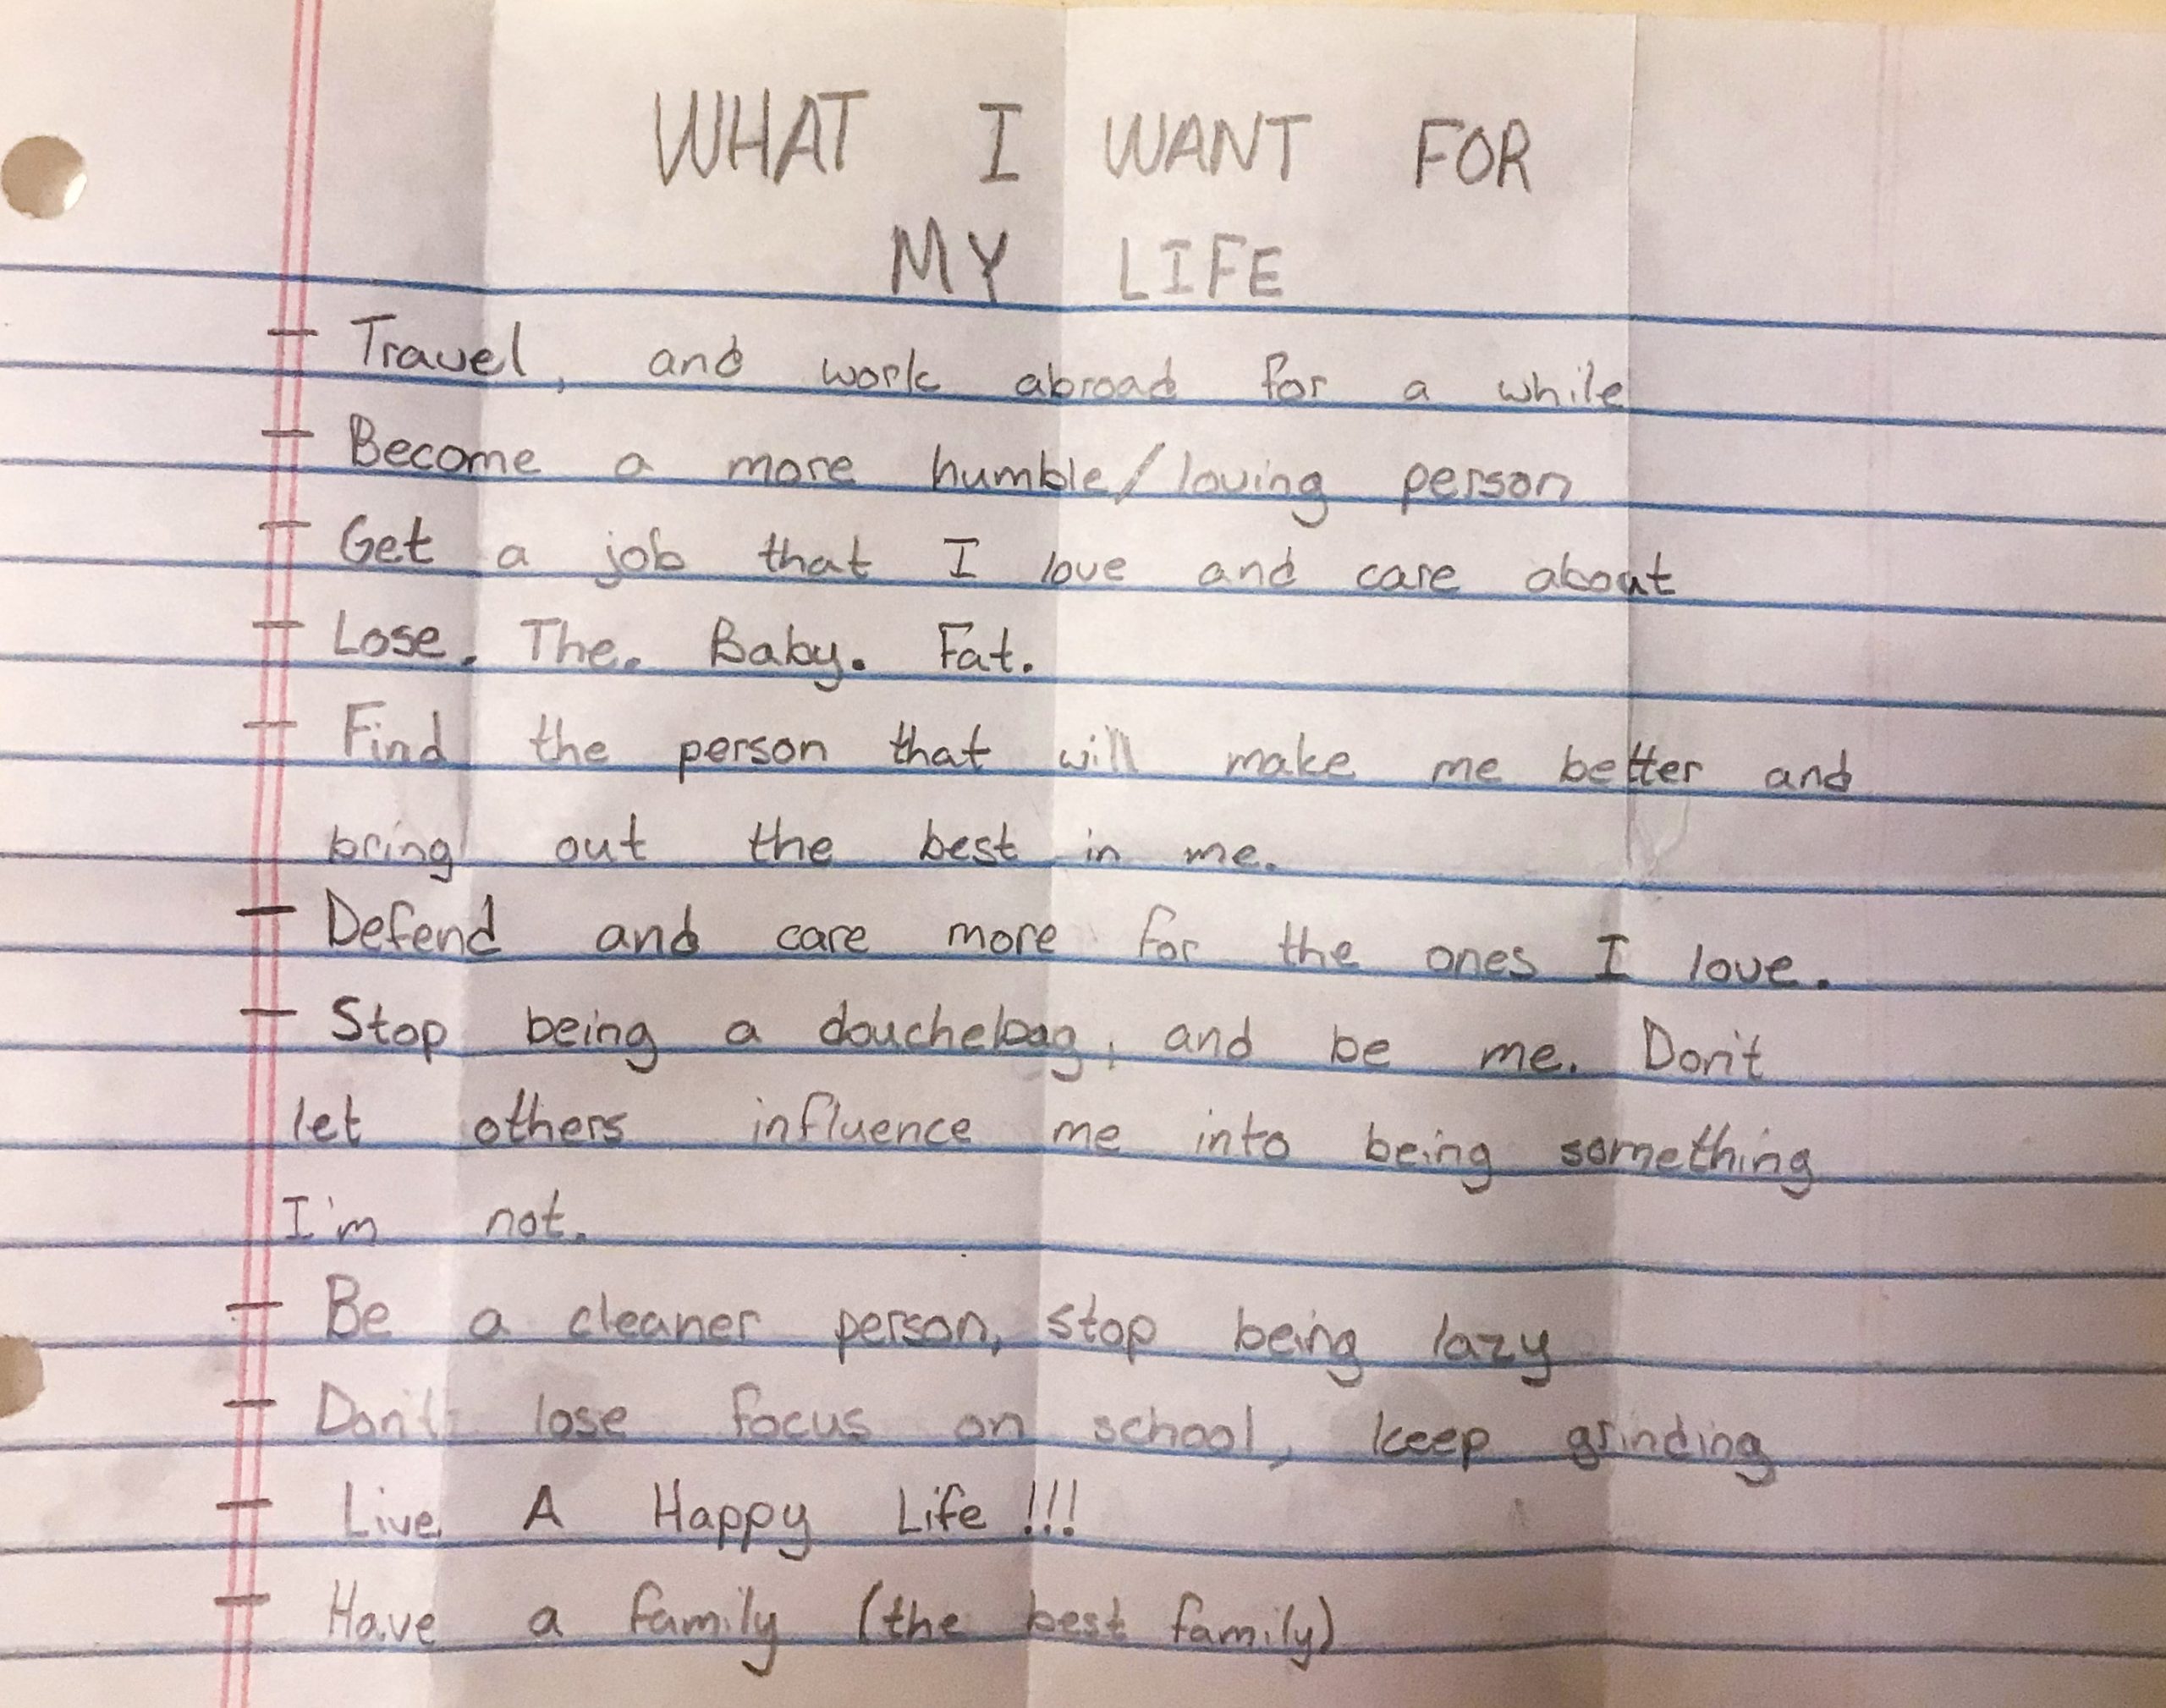 WHAT I WANT FOR
MY LIFE
- Travel, and work abroad for a while
- Become a more humble/loving person
- Get a job that I love and care about
- Lose. The. Baby. Fat.
- Find the person that will make me better and
bring out the best in me.
- Defend and care more for the ones I love.
- Stop being a douchebag, and be me. Don't
let others influence me into being something
I'm not.
- Be a cleaner person, stop being lazy
- Don't lose focus on school, keep grinding
- Live A Happy Life!!!
- Have a family (the best family)